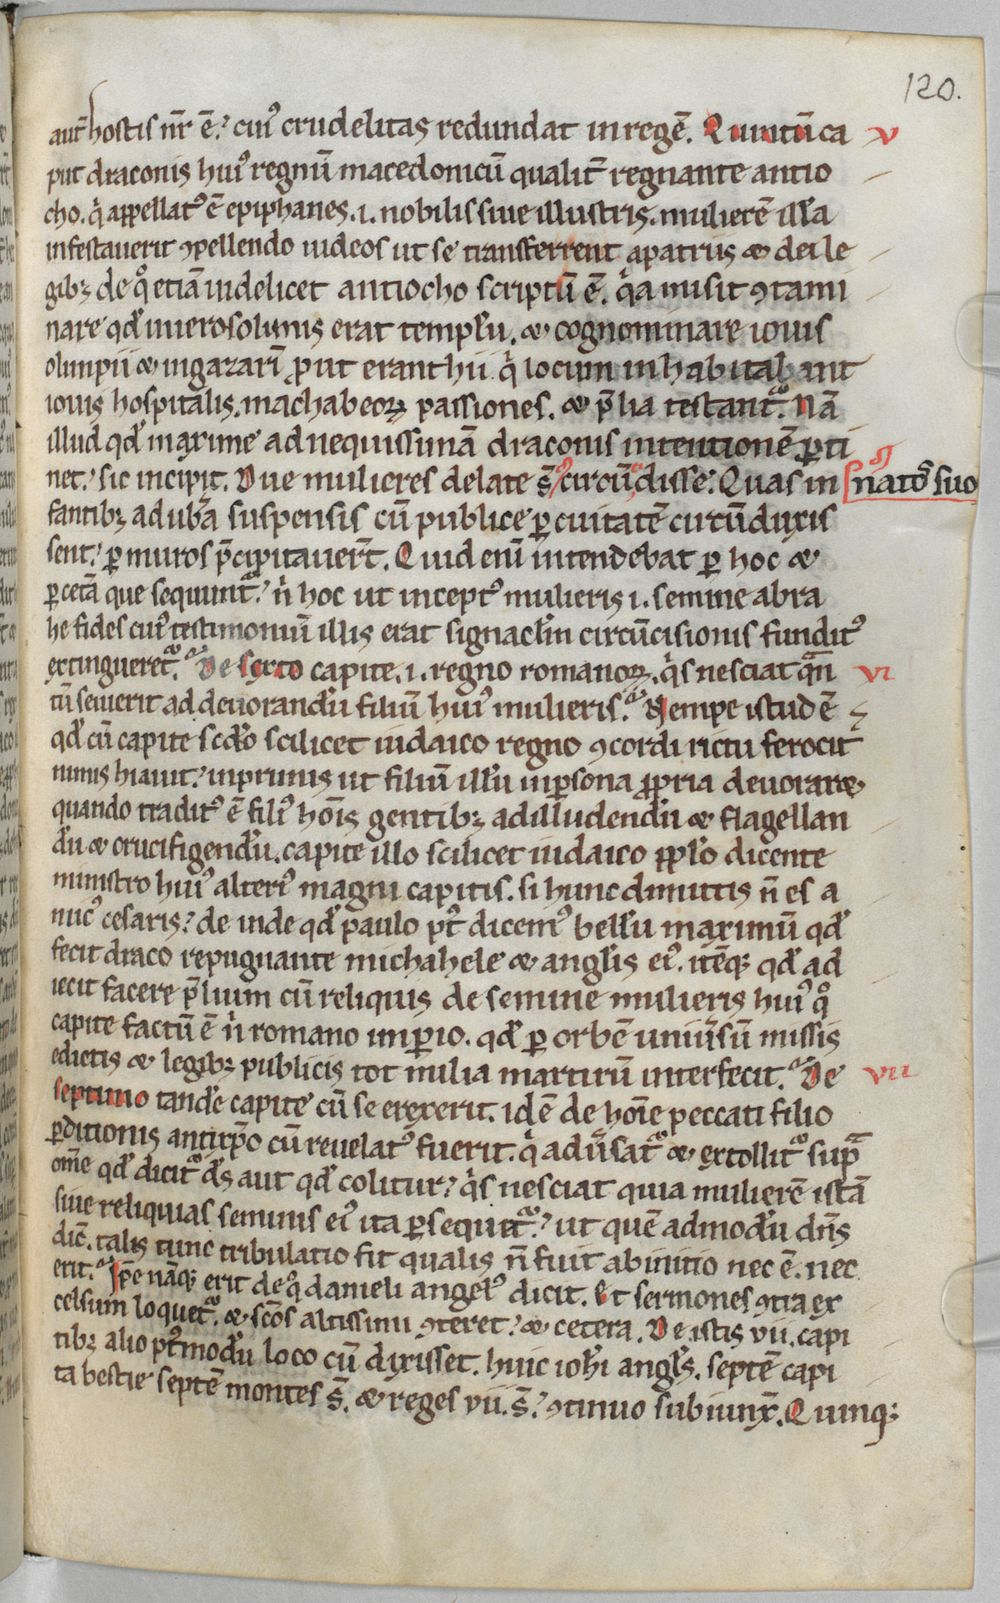 120.
aut̄ hostis nr̄ ē. cui᾽ crudelitas redundat in regē. Quintū ca V
put draconis hui᾽ regnū macedonicū qualit̄ regnante antio
cho. q̍ appellat᾽ ē epiphanes .i. nobilis siue illustris. mulierē illā
infestauerit ꝯpellendo iudeos ut se transferrent a patriis ⁊ dei le
gibꝫ de q̊ etiā uidelicet antiocho scriptū ē. q̍a misit ꝯtami
nare qd̄ in ierosolimis erat templū. ⁊ cognominare iouis
olimpii ⁊ in gazarī ꝓut erant hii q̍ locum inhabitabant
iouis hospitalis. machabeoꝝ passiones. ⁊ p̄lia testant᷑. Nā
illud qd̄ maxime ad nequissimā draconis intentionē ꝑti
net. sic incipit. Due mulieres delate s̄ circūcidisse. Quas in natos suos
fantibꝫ ad ubera suspensis cū publice ꝑ ciuitatē circūduxis
sent. ꝑ muros p̄cipitauer̄t. Quid enī intendebat ꝑ hoc ⁊
ꝑ cetā que sequunt᷑. n̍ hoc ut incept᾽ mulieris .i. semine abra
he fides cui᾽ testimoniū illis erat signacl̄m circūcisionis fundit᾽
extingueret᷑. De sexto capite .i. regno romanoꝝ. q̍s nesciat qᷓn VI
tū seuierit ad deuorandū filiū hui᾽ mulieris. Nempe istud ē
qd̄ cū capite scdo scilicet iudaico regno ꝯcordi rictu ferocit̄
nimis hiauit. inprimis ut filiū illū in ꝑsona ꝓpria deuoraret
quando tradit᾽ ē fili᾽ hōis gentibꝫ ad illudendū ⁊ flagellan
dū ⁊ crucifigendū. capite illo scilicet iudaico ppl̄o dicente
ministro hui᾽ alteri᾽ magni capitis. si hunc dimittis n̄ es a
mic᾽ cesaris. de inde qd̄ paulo pt̄ dicem᾽ bellū maximū qd̄
fecit draco repugnante michahele ⁊ angl̄is ei᾽. itēqꝫ qd̄ ad
iecit facere p̄lium cū reliquis de semine mulieris hui᾽ q̊
capite factū ē n̍ romano imꝑio. qd̄ ꝑ orbē uniūsū missis
edictis ⁊ legibꝫ publicis tot milia martirū interfecit. De VII
septimo tandē capite cū se erexerit. id ē de hoīe peccati filio
ꝑditionis antixp̄o cū reuelat᾽ fuerit. q̍ adūsat᷑ ⁊ extollit᷑ supᷓ
om̄e qd̄ dicit᷑ ds̄ aut qd̄ colitur. q̍s nesciat quia mulierē istā
siue reliquias seminis ei᾽ ita ꝑsequet᷑. ut quē admodū dn̄s
dic̄. talis tunc tribulatio fit qualis n̄ fuit ab initio nec ē. nec
erit. Ip̄e nāqꝫ erit de q̊ danieli angel᾽ dicit. Et sermones ꝯtra ex
celsum loquet᷑. ⁊ scōs altissimi ꝯteret. ⁊ cetera. De istis vii. capi
tibꝫ alio pt̄modū loco cū dixisset. huic ioh̄i angl̄s. septē capi
ta bestie septē montes s̄. ⁊ reges vii. s̄. ꝯtinuo subiunx̄. Quinqꝫ